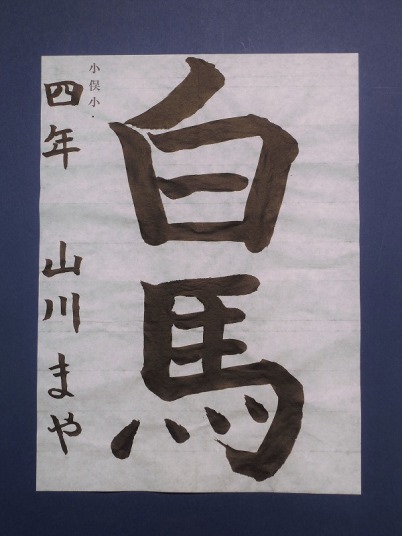 白馬
小俣小・
四年 山川まや